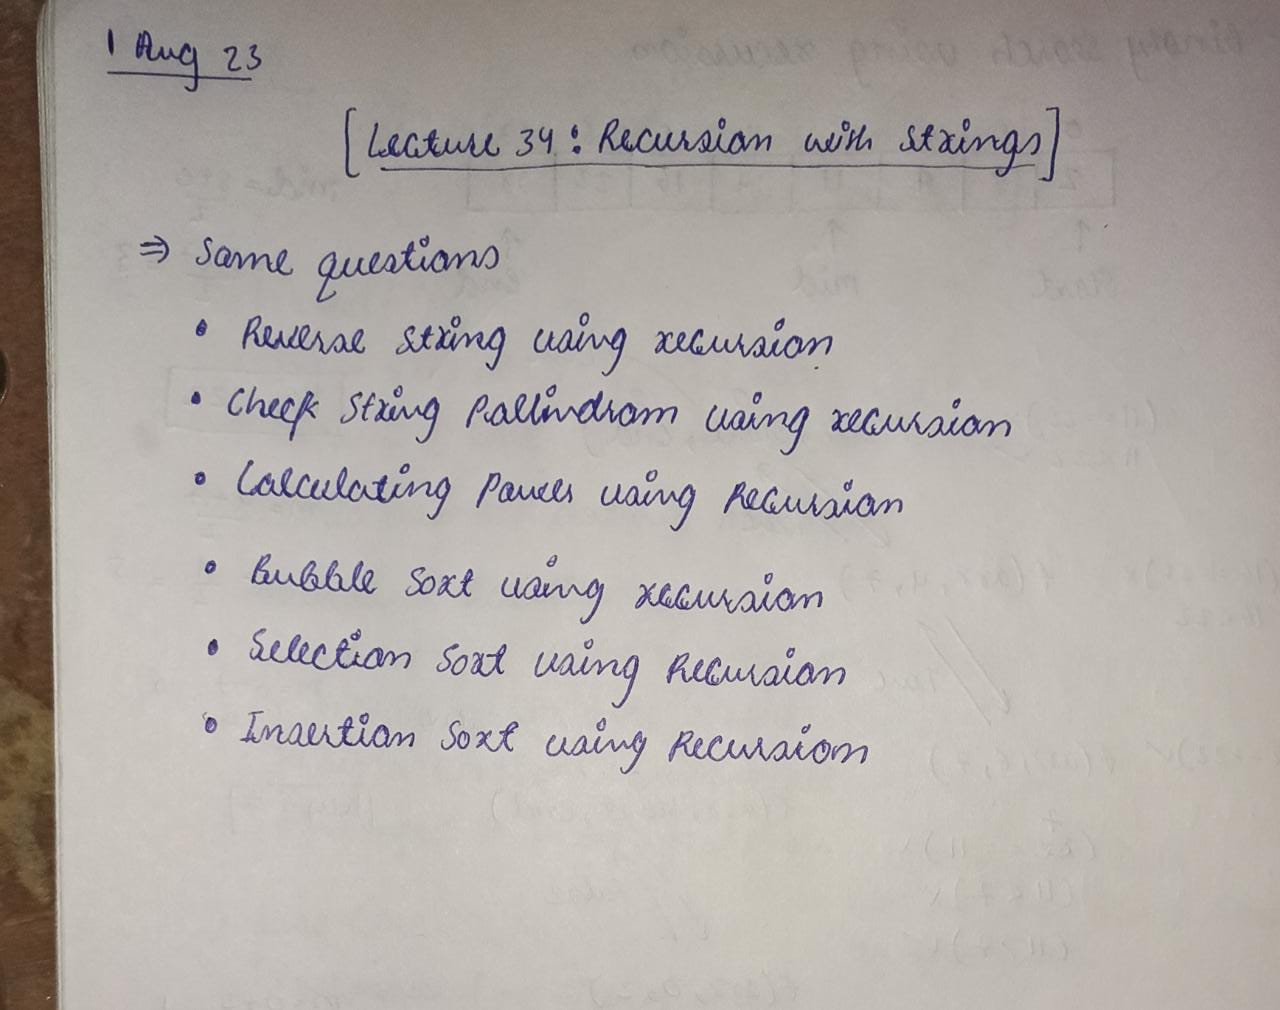 1 Aug 23
[Lecture 34: Recursion with strings]
⇒ Some questions
• Reverse string using recursion
• Check string Pallindrom using recursion
• Calculating Power using Recursion
• Bubble Sort using recursion
• Selection Sort using Recursion
• Insertion Sort using Recursion